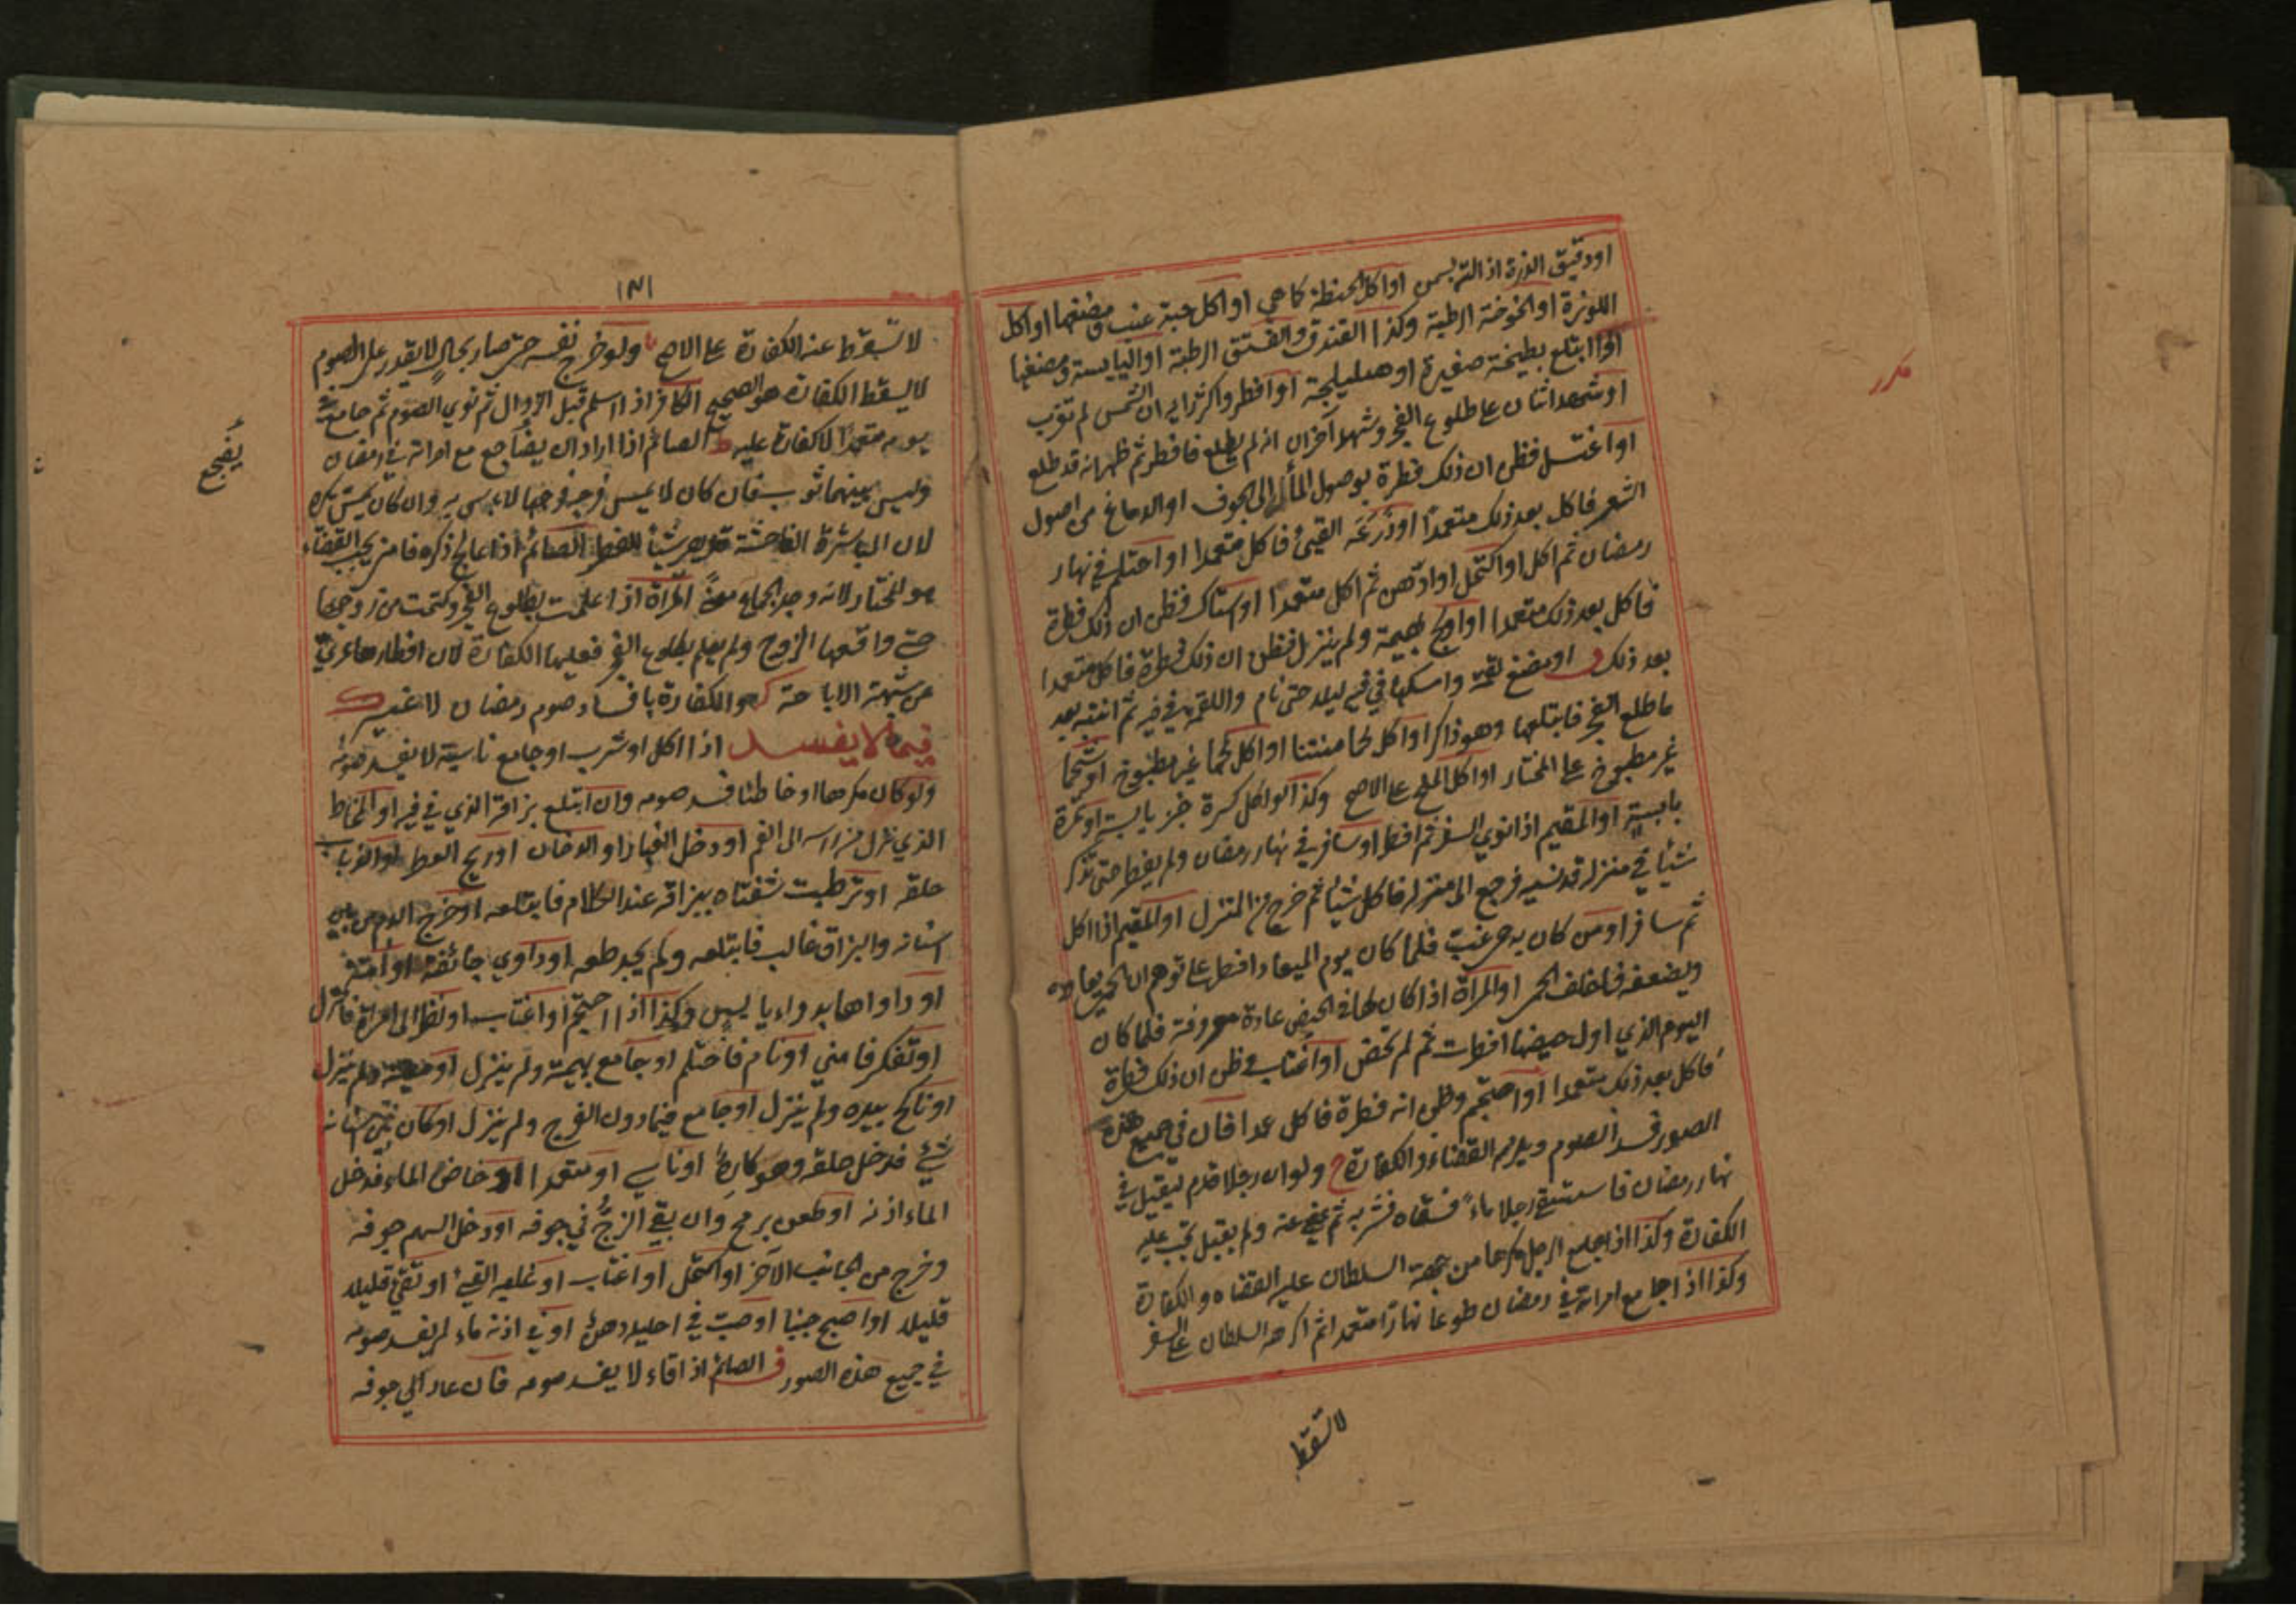 اودقيق الذرة اذا لته بسمن اواكل الحنطة كما هي اواكل حبة عنب ومضغها اواكل
اللوزة اوالخوخة الرطبة وكذا الفندق والفستق الرطبة اواليابسة ومضغها
اواابتلع بطيخة صغيرة اوهليلجة اوافطر واكثر رايه ان الشمس لم تغرب
اوشهد اثنان على طلوع الفجر وشهد آخران انه لم يطلع فافطر ثم ظهر انه قد طلع
اواغتسل فظن ان ذلك فطرة بوصول الماء الى الجوف اوالدماغ من اصول
الشعر فاكل بعد ذلك متعمدا اوذرعه القيئ فاكل متعمدا اواحتلم في نهار
رمضان ثم اكل اواكتحل اوادهن ثم اكل متعمدا اواستاك فظن ان ذلك فطرة
فاكل بعد ذلك متعمدا اواولج بهيمة ولم ينزل فظن ان ذلك فطرة فاكل متعمدا
بعد ذلك اومضغ لقمة وامسكها في فيه ليلا حتى نام واللقمة في فيه ثم انتبه بعد
ما طلع الفجر فابتلعها وهو ذاكر اواكل لحما منتنا اواكل لحما غير مطبوخ اوشحما
غير مطبوخ على المختار اواكل الملح على الاصح وكذا لواكل كسرة خبز يابسة اوتمرة
يابسة اوالمقيم اذا نوي السفر ثم افطر اوسافر في نهار رمضان ولم يفطر حتى تذكر
شيئا في منزله قد نسيه فرجع الى منزله فاكل شيئا ثم خرج من المنزل اوالمقيم اذا اكل
ثم سافر اومن كان به حمى غب فلما كان يوم الميعاد افطر على توهم ان الحمى يعاوده
ويضعفه فاخلف الحمى اوالمراة اذا كان لها في الحيض عادة معروفة فلما كان
اليوم الذي اول حيضها افطرت ثم لم تحض اواغتاب فظن ان ذلك فطرة
فاكل بعد ذلك متعمدا اواحتجم وظن انه فطرة فاكل عمدا فان في جميع هذه
الصور فسد الصوم ويلزم القضاء والكفارة ولو ان رجلا قدم ليقتل في
نهار رمضان فاستسقى رجلا ماء فسقاه فشربه ثم عفي عنه ولم يقتل تجب عليه
الكفارة وكذا اذا جامع الرجل مكرها من جهة السلطان عليه القضاء والكفارة
وكذا اذا جامع امراته في رمضان طوعا نهارا متعمدا ثم اكرهه السلطان على السفر
لا تسقط
مكرر
١٨١
لا تسقط عنه الكفارة على الاصح ولو جرح نفسه حتى صار بحال لا يقدر على الصوم
لا يسقط الكفارة هو الصحيح الكافر اذا اسلم قبل الزوال ثم نوي الصوم ثم جامع في
يومه متعمدا لا كفارة عليه الصائم اذا اراد ان يضاجع مع امراته في رمضان
وليس بينهما ثوب فان كان لا يمس فرجه فرجها لا باس به وان كان يمس يكره
لان المباشرة الفاحشة الصائم اذا عالج ذكره فامنى يجب القضاء
هو المختار لانه وجد الجماع معنى المراة اذا علمت بطلوع الفجر وكتمت من زوجها
حتى واقعها الزوج ولم يعلم بطلوع الفجر فعليها الكفارة لان افطارها عري
عن شبهة الاباحة الكفارة بافساد صوم رمضان لا غير
فيما لا يفسد اذا اكل اوشرب اوجامع ناسيا لا يفسد صومه
ولو كان مكرها اوخاطئا فسد صومه وان ابتلع بزاقه الذي في فيه اوالمخاط
الذي نزل من راسه الى الفم اودخل الغبار اوالدخان اوريح العطر اوالذباب
حلقه اوترطبت شفتاه ببزاقه عند الكلام فابتلعه اوخرج الدم من بين
اسنانه والبزاق غالب فابتلعه ولم يجد طعمه اوداوي جائفة اوآمة
اوداواها بدواء يابس وكذا اذا احتجم اواغتاب اونظر الى امراة فانزل
اوتفكر فامني اونام فاحتلم اوجامع بهيمة ولم ينزل اوميتة ولم ينزل
اوناكح بيده ولم ينزل اوجامع فيما دون الفرج ولم ينزل اوكان بين اسنانه
شيئ فدخل حلقه وهو كاره اوناسي اومتعمدا اوخاض الماء فدخل
الماء اذنه اوطعن برمح وان بقي الزج في جوفه اودخل السهم جوفه
وخرج من الجانب الآخر اواكتحل اواغتاب اوغلبه القيئ اوتقيئ قليلا
قليلا اواصبح جنبا اوصب في احليله دهن اوفي اذنه ماء لم يفسد صومه
في جميع هذه الصور الصائم اذا قاء لا يفسد صومه فان عاد الى جوفه